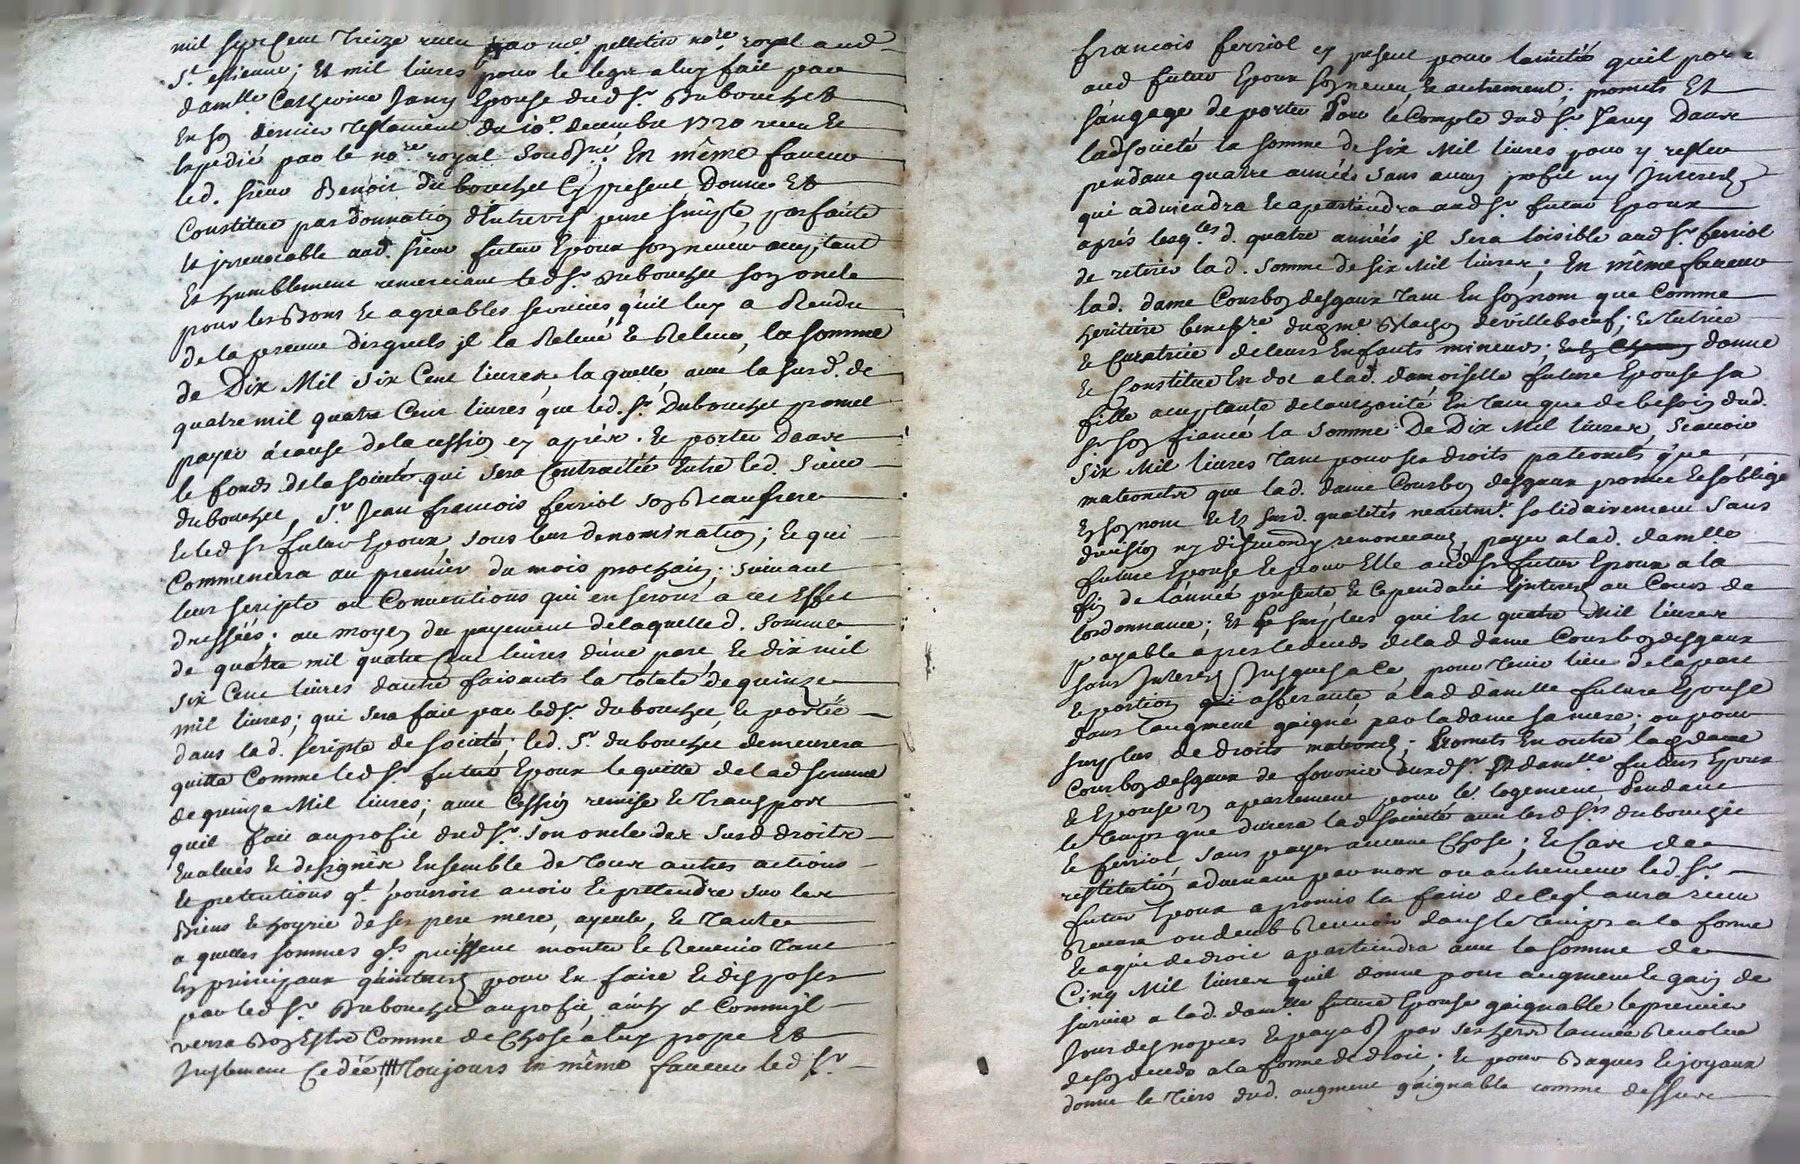 mil sept Cent Treize receu par me. pelletier nore. royal aud
St. estienne; Et mil livres pour le legs a luy fait par
damlle Catherine Jany Epouse dud sr. Dubouchet
En son dernier Testament du 10e. decembre 1720 receu Et
Expedié par le nore. royal soubsné. En même faveur
led. sieur Benoit du bouchet Cy present Donne Et
Constitue par donnation d'Entrevifs pure simple, parfaite
Et irrevocable aud. sieur futur Epoux son neveu acceptant
Et humblement remerciant led sr. Dubouchet son oncle
pour les Bons Et agreables services qu'il luy a Rendu
de la preuve desquels jl la Relevé Et Releve, la somme
de Dix Mil six Cent livres la quelle, avec la susd. de
quatre mil quatre Cent livres que led. sr. Dubouchet promet
payer a cause de la cession cy aprés. Et porter dans
le fonds de la societé qui sera Contractée Entre led. sieur
dubouchet, sr. Jean francois ferriol son Beaufrere
Et led sr futur Epoux, sous leur denomination; Et qui
Commencera au premier du mois prochain; suivant
leur scripte ou Conventions qui en seront a cet Effet
dressées; au moyen du payement de laquelle d. somme
de quatre mil quatre Cent livres d'une part Et dix mil
six Cent livres d'autre faisants la totale de quinze
mil livres; qui sera fait par led sr. dubouchet, Et portée
dans la d. scripte de societé, led. sr. dubouchet demeurera
quitte Comme led sr. futur Epoux le quitte de lad somme
de quinze Mil livres; avec Cession remise Et transport
quil fait au profit dud sr. son oncle des susd droits
Evalués Et designés Ensemble de tous autres actions
Et pretentions qt. pourroit avoir Et pretendre sur les
Biens Et hoyrie de ses pere mere, ayeule, Et Tante
a quelles sommes qls. puissent monter Et Revenir tant
En principaux qu'interets pour En faire Et disposer
par led sr. Dubouchet au profit, ainsy & Comm'jl
verra Bon Estre Comme de Chose a luy propre Et
justement Cedée, Toujours en même faveur led sr.
francois ferriol cy present pour lamitié quil porte
aud futur Epoux son neveu, Et autrement; promets Et
s'angage de porter Pour le Compte dud sr Jany Dans
ladsocieté la somme de six Mil livres pour y rester
pendant quatre années sans aucun profit ny Interest
qui adviendra Et apartiendra aud sr. futur Epoux
aprés lesqles d. quatre années jl sera loisible aud sr. ferriol
de retirer la d. somme de six Mil livres; En même faveur
la d. dame Courbon desgaux tant En son nom que Comme
heritiere benefre du me Blachon de villeboeuf; Et tutrice
Et Curatrice de leurs Enfants mineurs; donne
Et Constitue En dot a la d. damoiselle future Epouse sa
fille acceptante de l'authorité En tant que de besoin dud.
sr. son fiancé la somme De Dix Mil livres, scavoir
six Mil livres tant pour ses droits paternels que
maternels que la d. dame Courbon desgaux promet Et s'oblige
En son nom Et En susd. qualités neantmt. solidairement sans
division ny discution y renonceant, payer a la d. damlle
future Epouse Et pour Elle aud sr futur Epoux a la
fin de l'année presente Et Cependant l'interest au Cours de
l'ordonnance; Et le surplus qui Est quatre Mil livres
payable apres le deceds de la d dame Courbon desgaux
sans Interest Jusques a Ce, pour tenir lieu de la part
Et portion afferante a la d damlle future Epouse
dans l'augment gaigné par la dame sa mere; ou pour
surplus de droits maternels; Promets En outre lad dame
Courbon desgaux de fournir ausd srs. Et damlle. futurs Epoux
Et Epouse un apartement pour le logement Pendant
le temps que durera lad societé avec lesd srs dubouchet
Et ferriol sans payer aucune Chose; Et Cas de
restitution advenant par mort ou autrement led. sr.
futur Epoux a promis la faire de le qt aura receu
Receue ou deub Recevoir dans le temps a la forme
Et a qui de droit apartiendra avec la somme de
Cinq Mil livres qu'il donne pour augment Et gain de
survie a la d. damlle future Epouse gaignable le premier
jour des nopces Et payable par ses hers. l'année Revolue
de son deceds a la forme de droit; Et pour Bagues Et joyaux
donne le Tiers dud. augment gaignable comme dessus